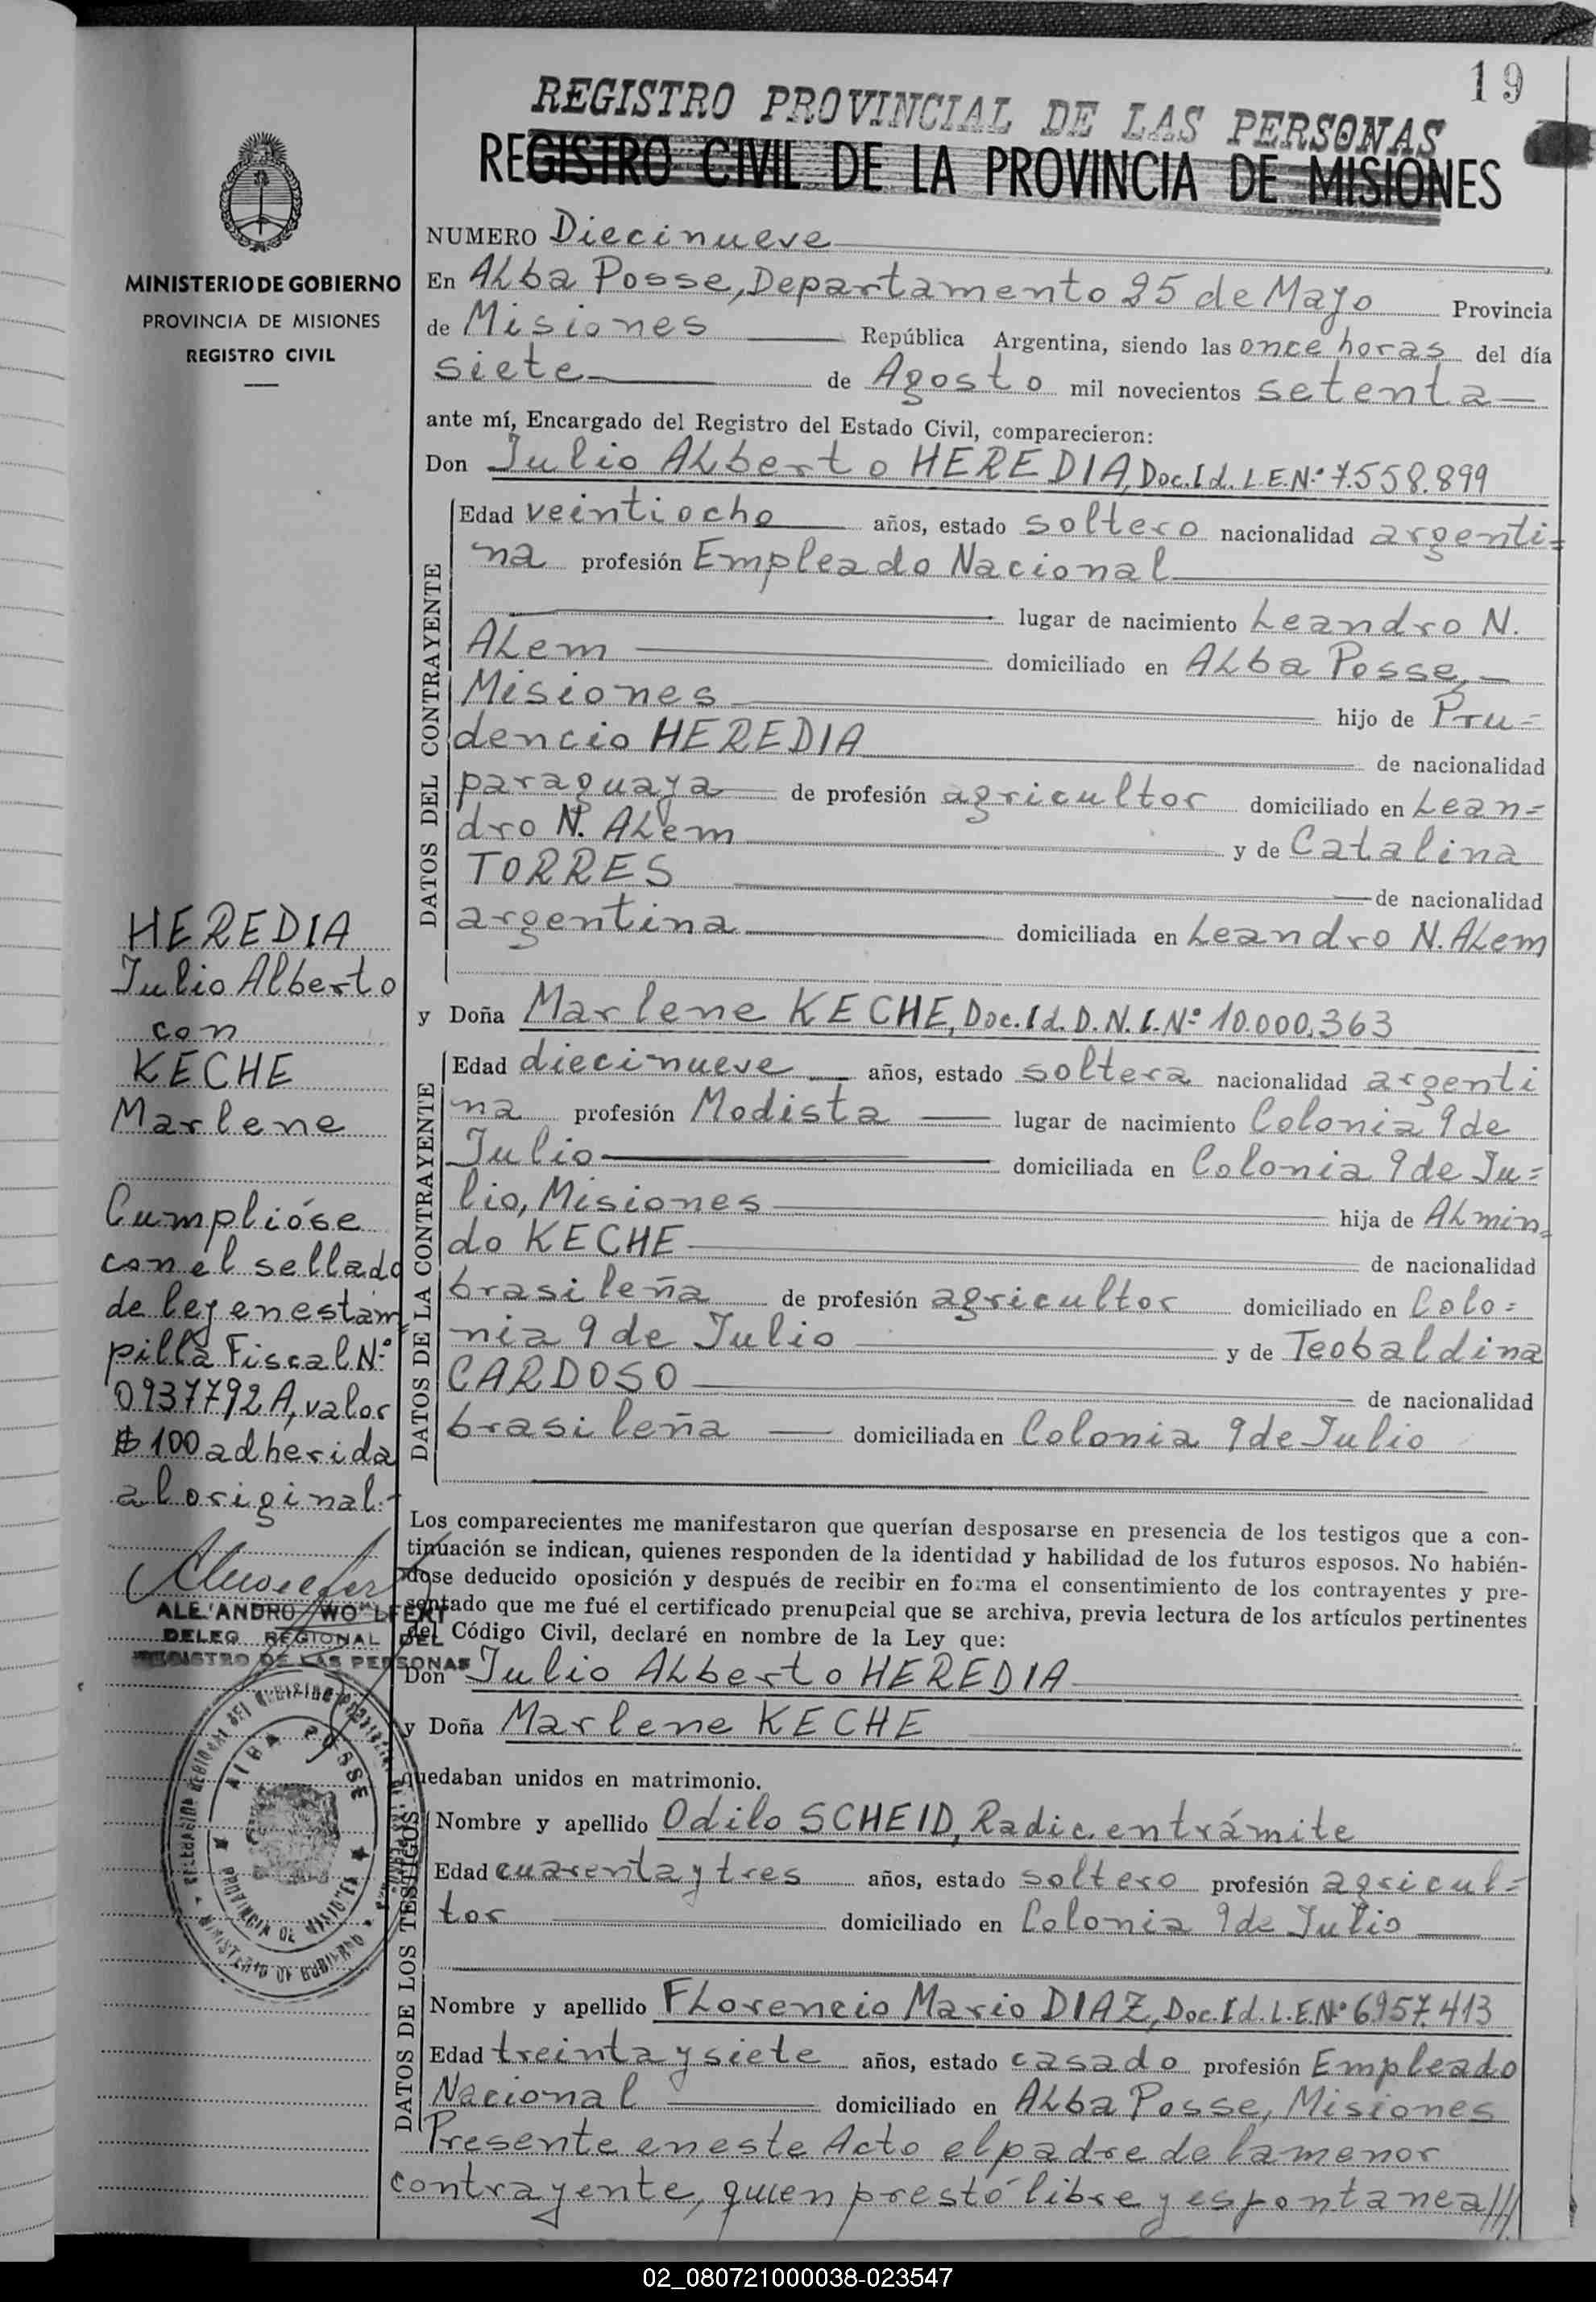 19
REGISTRO PROVINCIAL DE LAS PERSONAS
REGISTRO CIVIL DE LA PROVINCIA DE MISIONES
MINISTERIO DE GOBIERNO
PROVINCIA DE MISIONES
REGISTRO CIVIL
NUMERO Diecinueve
En Alba Posse, Departamento 25 de Mayo Provincia
de Misiones República Argentina, siendo las once horas del día
siete de Agosto mil novecientos setenta
ante mí, Encargado del Registro del Estado Civil, comparecieron:
Don Julio Alberto HEREDIA, Doc. Id. L.E. Nº 7.558.899
DATOS DEL CONTRAYENTE
Edad veintiocho años, estado soltero nacionalidad argenti=
na profesión Empleado Nacional
lugar de nacimiento Leandro N.
Alem domiciliado en Alba Posse,
Misiones hijo de Pru=
dencio HEREDIA de nacionalidad
paraguaya de profesión agricultor domiciliado en Lean=
dro N. Alem y de Catalina
TORRES de nacionalidad
argentina domiciliada en Leandro N. Alem
y Doña Marlene KECHE, Doc. Id. D.N.I. Nº 10.000.363
DATOS DE LA CONTRAYENTE
Edad diecinueve años, estado soltera nacionalidad argenti
na profesión Modista lugar de nacimiento Colonia 9 de
Julio domiciliada en Colonia 9 de Ju=
lio, Misiones hija de Almin=
do KECHE de nacionalidad
brasileña de profesión agricultor domiciliado en Colo=
nia 9 de Julio y de Teobaldina
CARDOSO de nacionalidad
brasileña domiciliada en Colonia 9 de Julio
HEREDIA
Julio Alberto
con
KECHE
Marlene
Cumplióse
con el sellado
de ley en estam=
pilla Fiscal Nº
0937792 A, valor
$ 100 adherida
al original.-
ALEJANDRO WOLFEXT
DELEG. REGIONAL DEL
REGISTRO DE LAS PERSONAS
ALBA POSSE
PROVINCIA DE MISIONES
Los comparecientes me manifestaron que querían desposarse en presencia de los testigos que a con-
tinuación se indican, quienes responden de la identidad y habilidad de los futuros esposos. No habién-
dose deducido oposición y después de recibir en forma el consentimiento de los contrayentes y pre-
sentado que me fué el certificado prenupcial que se archiva, previa lectura de los artículos pertinentes
del Código Civil, declaré en nombre de la Ley que:
Don Julio Alberto HEREDIA
y Doña Marlene KECHE
quedaban unidos en matrimonio.
DATOS DE LOS TESTIGOS
Nombre y apellido Odilo SCHEID, Radic. en trámite
Edad cuarenta y tres años, estado soltero profesión agricul=
tor domiciliado en Colonia 9 de Julio
Nombre y apellido Florencio Mario DIAZ, Doc. Id. L.E. Nº 6957.413
Edad treinta y siete años, estado casado profesión Empleado
Nacional domiciliado en Alba Posse, Misiones
Presente en este Acto el padre de la menor
contrayente, quien prestó libre y espontanea///
02_080721000038-023547